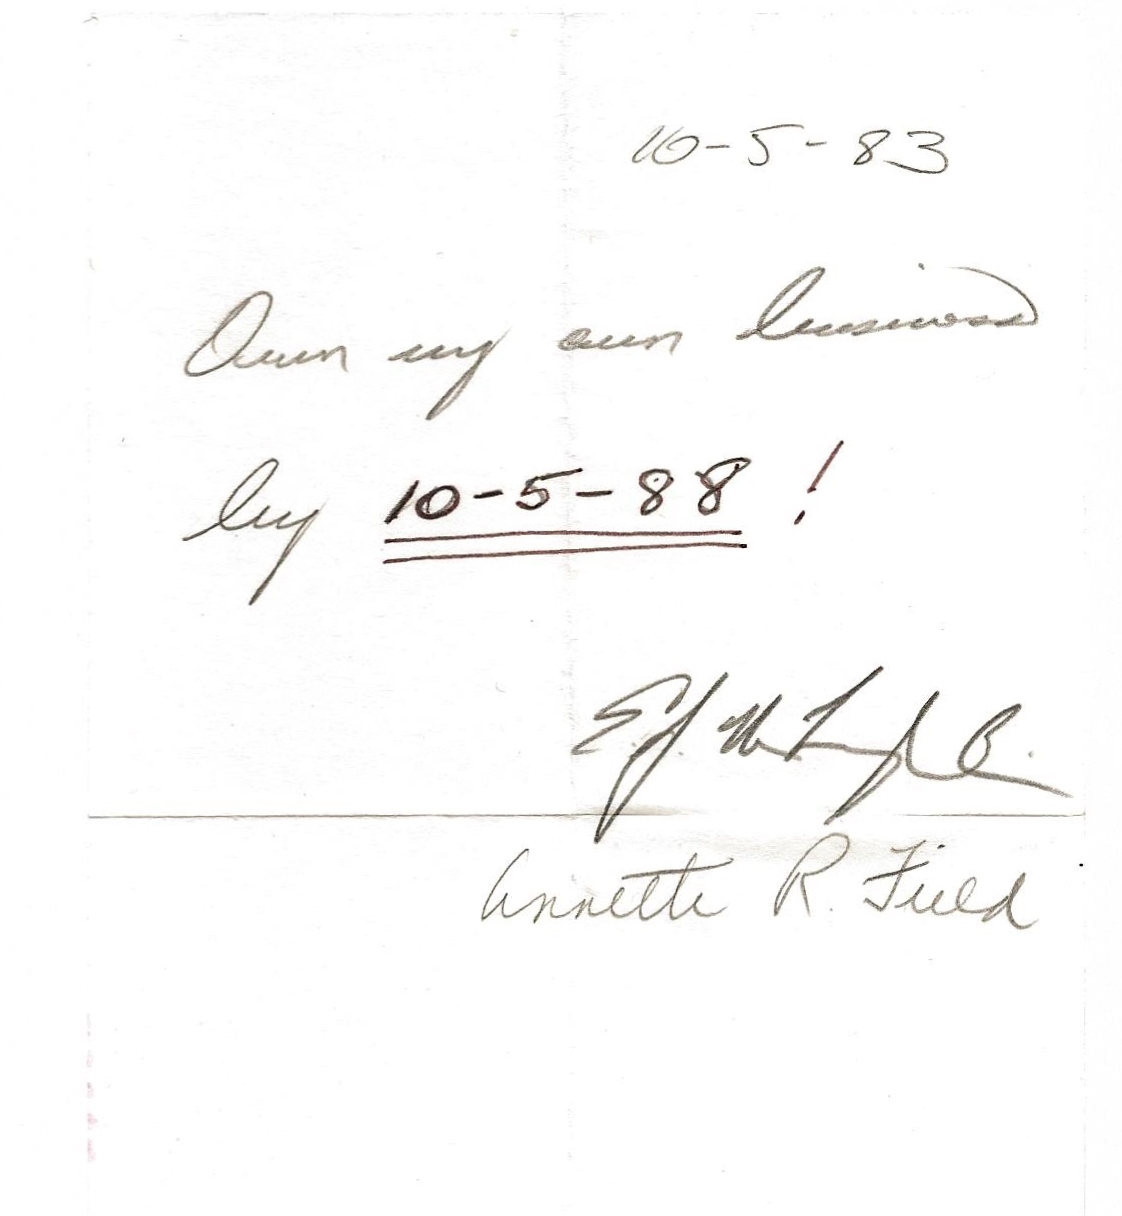 10-5-83
Own my own business
by 10-5-88 !
Annette R. Field